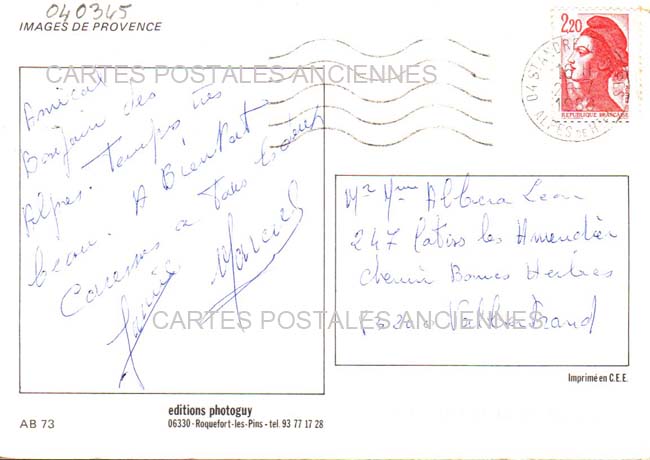 040345
IMAGES DE PROVENCE
2,20
REPUBLIQUE FRANÇAISE
04 ST ANDRE
ALPES DE H
CARTES POSTALES ANCIENNES
Amical
Bonjour des
Alpes. Temps très
beau. A Bientôt
Caresses a
Mr Mme Albera Leon
247 les Amandiers
Chemin Bonnes Herbes
CARTES POSTALES ANCIENNES
Imprimé en C.E.E.
editions photoguy
AB 73
06330 - Roquefort-les-Pins - tel. 93 77 17 28